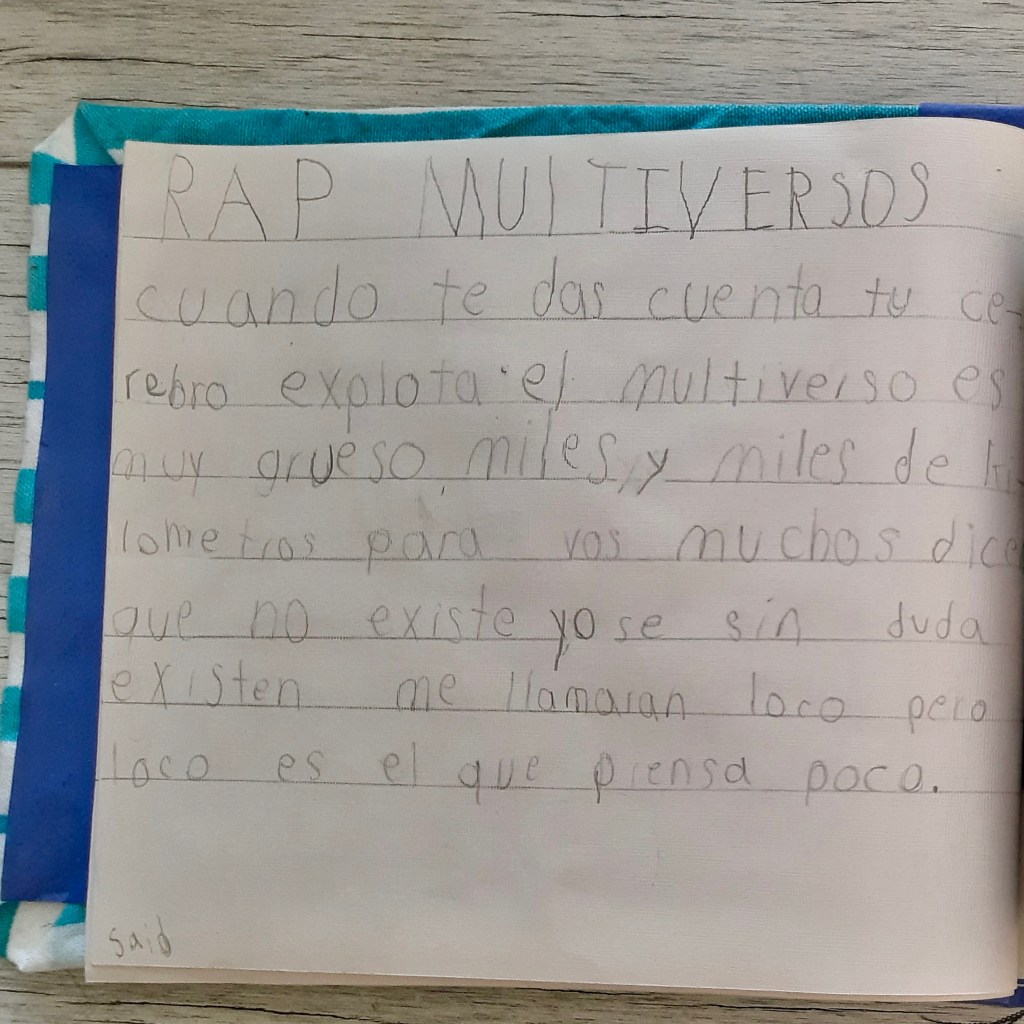 RAP MULTIVERSOS
cuando te das cuenta tu ce-
rebro explota el multiverso es
muy grueso, miles, y miles de ki-
lometros para vos muchos dicen
que no existe yo se sin duda
existen me llamaran loco pero
loco es el que piensa poco.
said